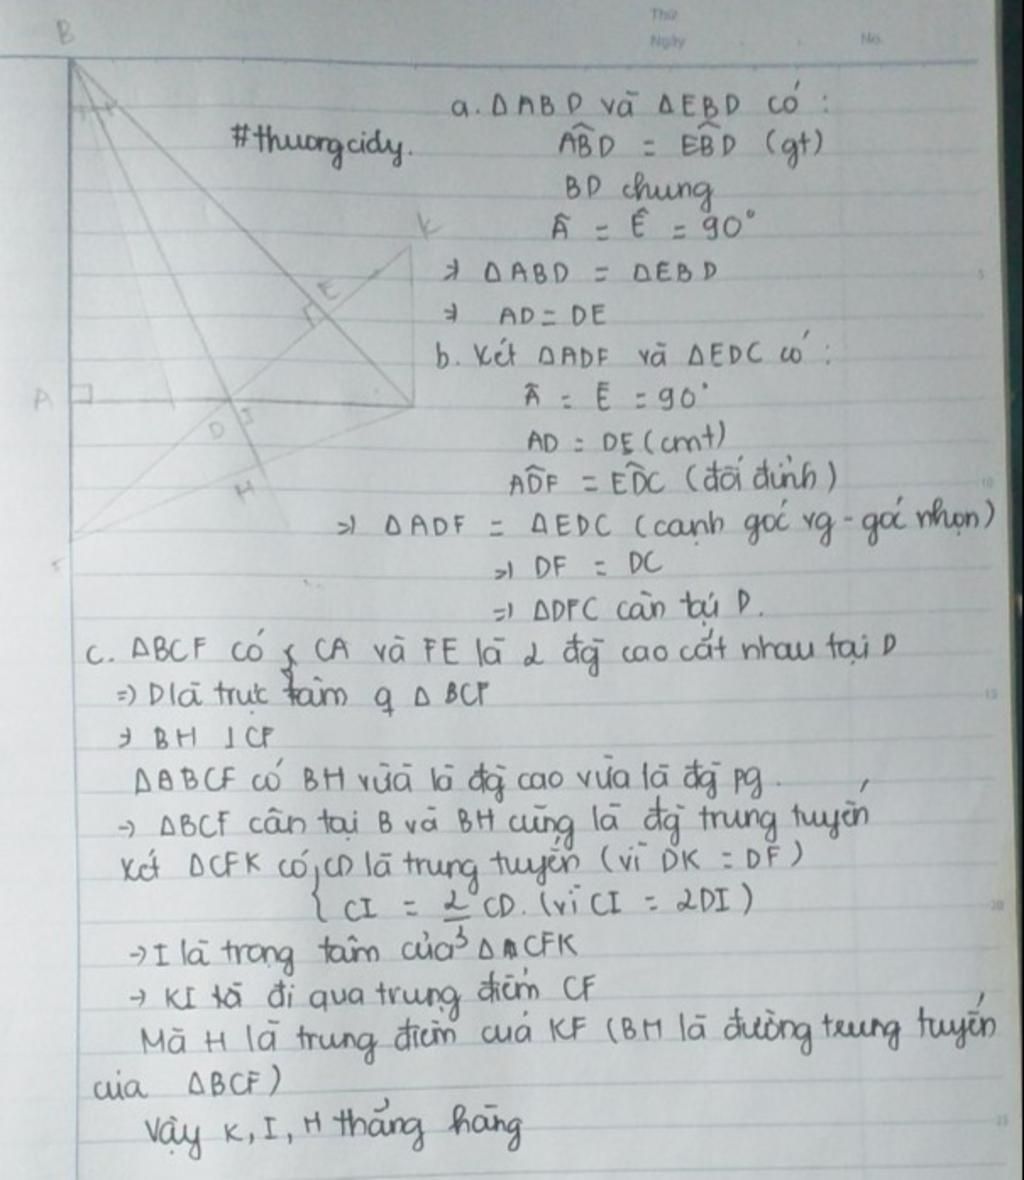 Thứ
Ngày
No.
B
a. ΔABD và ΔEBD có :
#thuongcidy.
ABD̂ = EBD̂ (gt)
BD chung
K
Â = Ê = 90°
=> ΔABD = ΔEBD
E
=> AD = DE
b. Xét ΔADF và ΔEDC có :
A
Â = Ê = 90°
D
I
AD = DE (cmt)
H
ADF̂ = EDĈ (đối đỉnh)
=> ΔADF = ΔEDC (cạnh góc vg - góc nhọn)
F
=> DF = DC
=> ΔDFC cân tại D.
c. ΔBCF có { CA và FE là 2 đg cao cắt nhau tại D
=> D là trực tâm q Δ BCF
=> BH ⊥ CF
ΔBCF có BH vừa là đg cao vừa là đg pg.
-> ΔBCF cân tại B và BH cũng là đg trung tuyến
Xét ΔCFK có { CD là trung tuyến (vì DK = DF)
{ CI = 2/3 CD. (vì CI = 2DI)
-> I là trọng tâm của Δ CFK
-> KI đi qua trung điểm CF
Mà H là trung điểm của KF (BH là đường trung tuyến
của ΔBCF)
Vậy K, I, H thẳng hàng